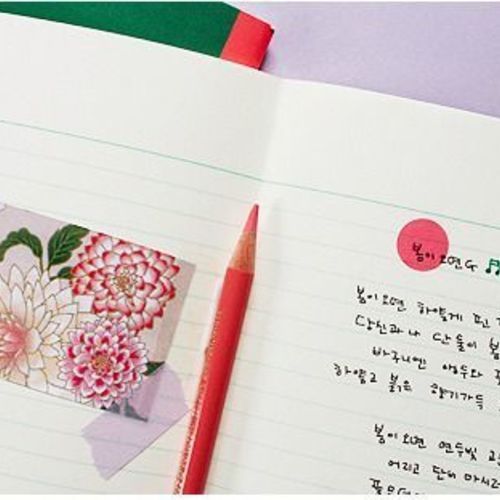 봄이오면 ♬
봄이오면 하얗게 핀
당신과 나 단 둘이 봄
바구니엔 앵두와
하얗고 붉은 향기가득
봄이오면 연두빛 고
어리고 단비 마시러